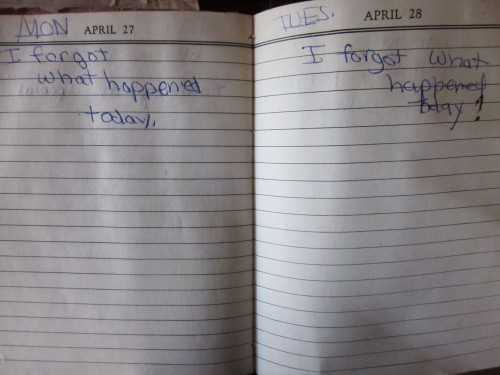 MON APRIL 27
I forgot
what happened
today.
TUES. APRIL 28
I forgot what
happened
today!